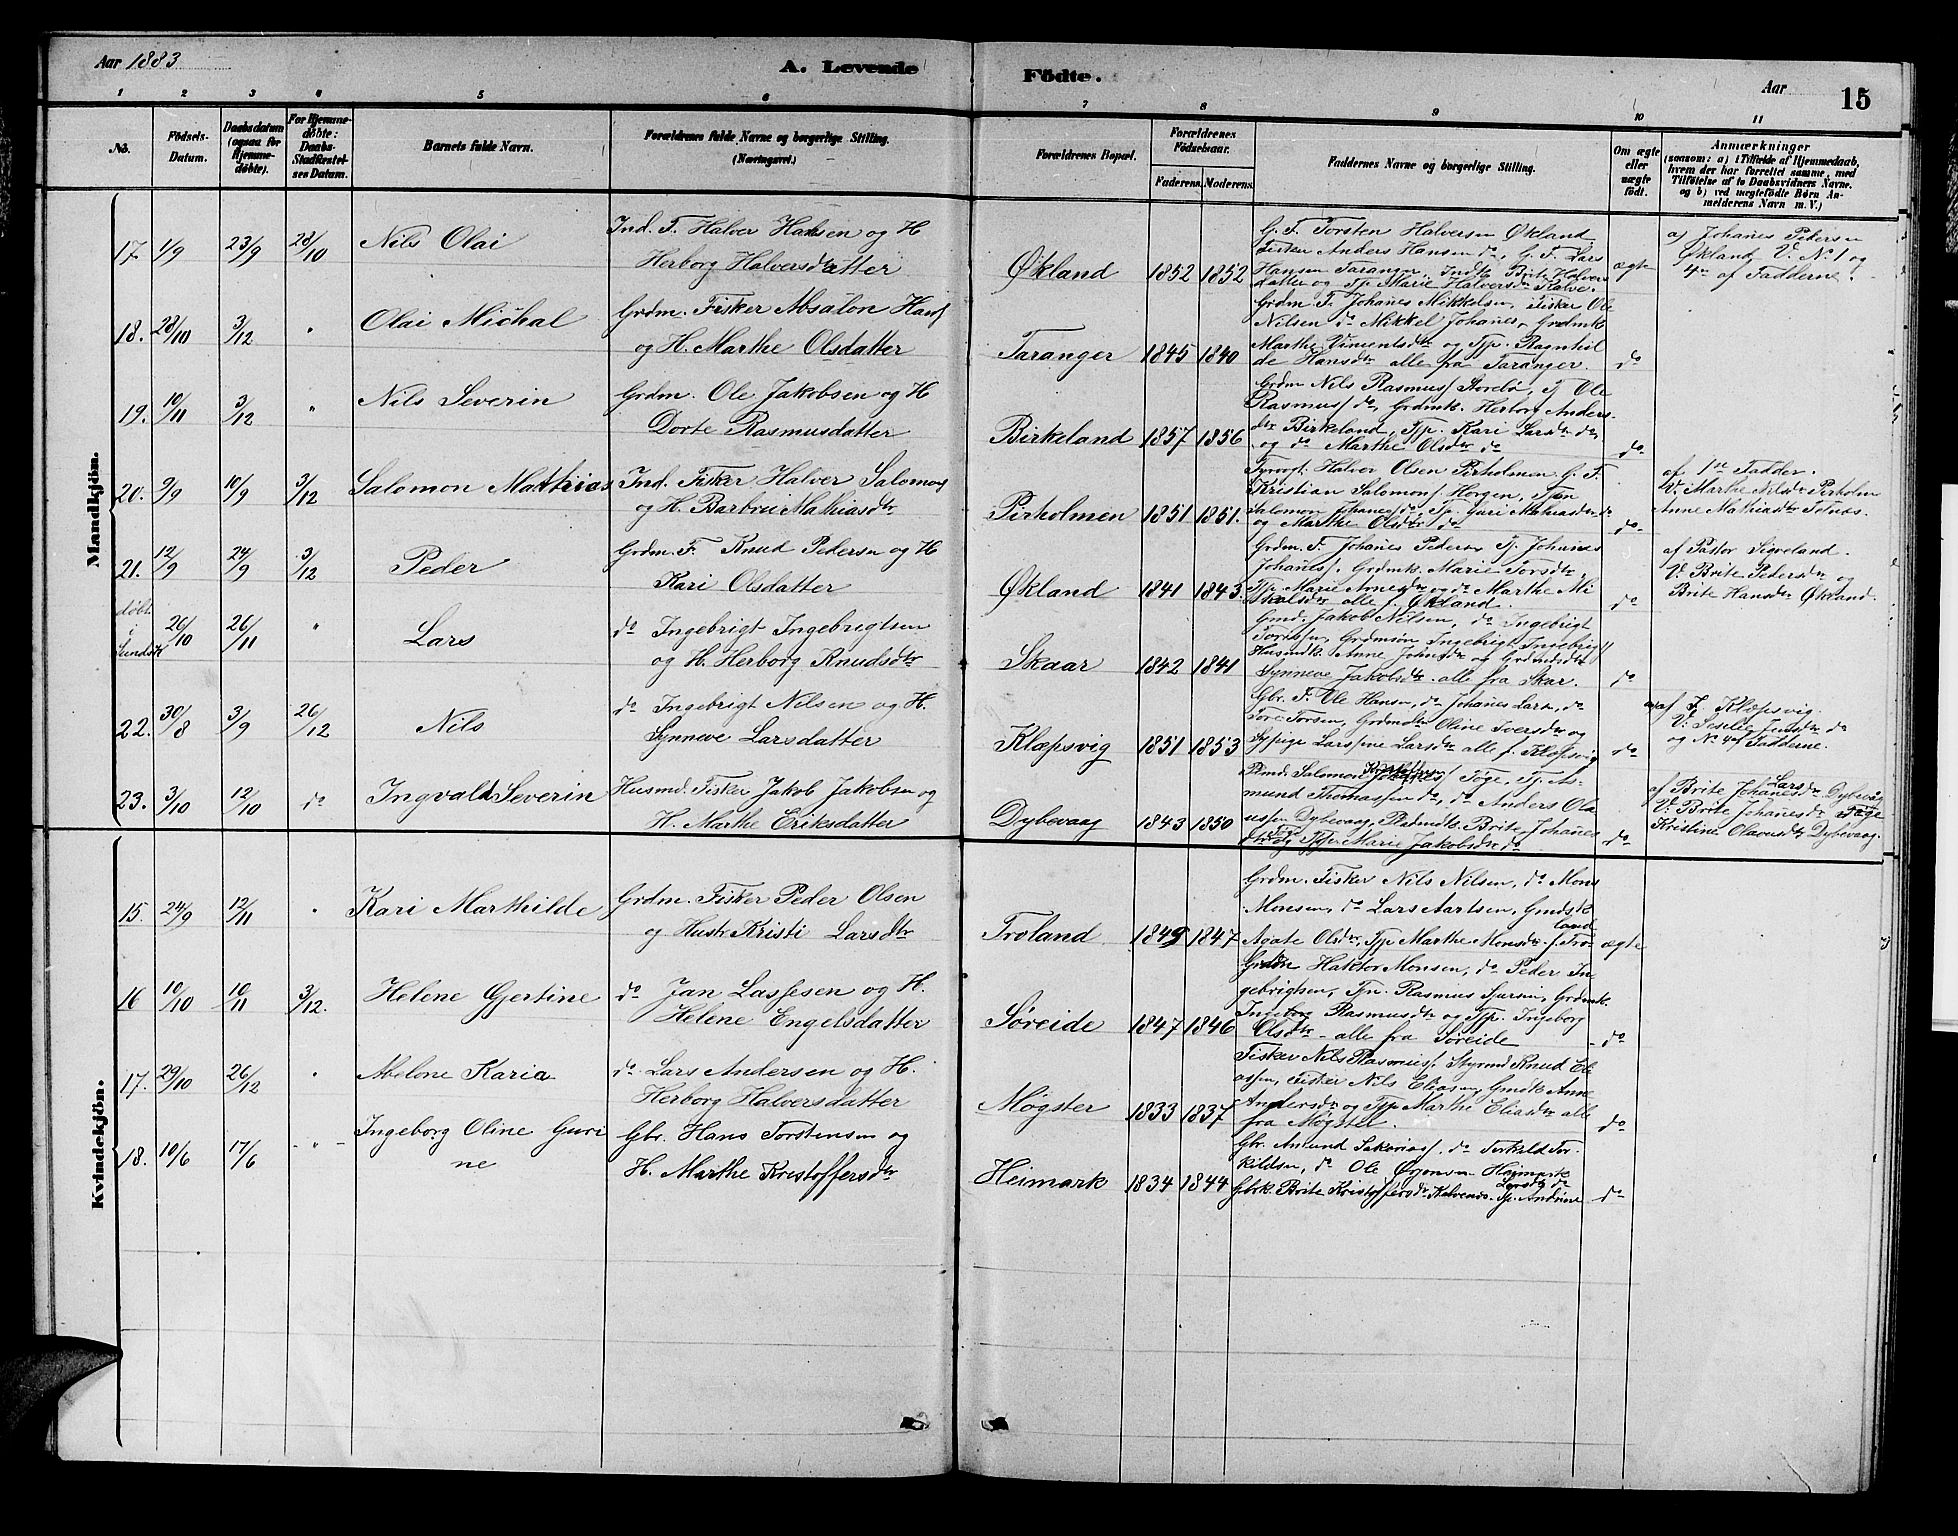 Aar 1883
A. Levende
Födte.
Aar
15
1 2 3 4 5 6 7 8 9 10 11
No.
Födsels-
Datum.
Daabsdatum
(ogsaa for
Hjemme-
døbte).
For Hjemme-
døbte:
Daabs-
Stadfæstel-
ses Datum.
Barnets fulde Navn.
Forældrenes fulde Navne og borgerlige Stilling.
(Næringsvei.)
Forældrenes Bopæl.
Forældrenes
Födselsaar.
Faderens. Moderens.
Faddernes Navne og borgerlige Stilling.
Om ægte
eller
uægte
födt.
Anmærkninger
(saasom: a) i Tilfælde af Hjemmedaab,
hvem der har forrettet samme, med
Tilföielse af to Daabsvidners Navne.
og b) ved uegtefödte Börn An-
melderens Navn m. V.)
Mandkjön.
17. 1/9 23/9 28/10 Nils Olai
Ind. F. Halver Hansen og H
Herborg Halversdatter
Økland 1852 1852
G. F. Torsten Halversen Økland.
Fisker Anders Hansen do, G. F. Lars
Hansen Taranger, Indk Brite Halvers
datter og Tjp Marie Halversdr Kalve.
ægte
a) Johanes Pedersen
Økland V. No 1 og
4re af Fadderne.
18. 28/10 3/12 " Olai Michal
Grdm. Fisker Absalon Hans/
og H. Marthe Olsdatter
Taranger 1845 1840
Grdm. F. Johanes Mikkelsen, Fisker Ole
Nilsen do Mikkel Johanes, Grdmk
Marthe Vincentsdr og Tjp. Ragnhil
de Hansdr alle fra Taranger.
do
19. 10/11 3/12 " Nils Severin
Grdm. Ole Jakobsen og H
Dorte Rasmusdatter
Birkeland 1857 1856
Grdm Nils Rasmus/ Storebø, Tj Ole
Rasmus/ do, Grdmk. Herborg Anders
dr Birkeland, Tjp. Kari Larsdr do,
og do Marthe Olsdr do
do
20. 9/9 10/9 3/12 Salomon Mathias
Ind. Fisker Halver Salomons/
og H. Barbru Mathiasdr
Pirholmen 1851 1851.
Fyrvogt. Halver Olsen Pirholmen G. F.
Kristian Salomon/ Horgen, Tjen
Salomon Johanes/ do, Tjp. Guri Mathiasdr do
og Marthe Olsdr do
do
af 1ste Fadder.
V. Marthe Nilsdr Pirholm
Anne Mathiasdr
21. 12/9 24/9 3/12 Peder
Grdm. F. Knud Pedersn og H
Kari Olsdatter
Økland 1841 1843.
Grdm. F. Johanes Pedersn Tj. Johanes
Johanes/. Grdmk. Marie Torsdr.
Tjp Marie Arnesdr og do Marthe Mi
kalsdr alle f. Økland.
do
af Pastor Sigveland.
V. Brite Pedersdr og
Brite Hansdr Økland.
døbt
i
Sundsk
26/10 26/11 " Lars
do Ingebrigt Ingebrigtsen
og H. Herborg Knudsdr
Skaar 1842 1841
Gmd. Jakob Nilsen, do Ingebrigt
Toresn, Grdmsøn Ingebrigt Ingebrig//
Husmdk. Anne Johnsdr og Grdmdsdr
Synneve Jakobsdr alle fra Skar.
do
22. 30/8 3/9 26/12 Nils
do Ingebrigt Nilsen og H.
Synneve Larsdatter
Klæpsvig 1851 1853
Gbr. F. Ole Hansn, do Johanes Larsn, do
Tore Torsen, Grdmdr Oline Iversdr og
Sypige Larsine Larsdr alle f. Klæpsvig
do
af J. Klæpsvig.
V. Seselie Jensdr do
og No 4 af Fadderne.
23. 3/10 12/10 do Ingvald Severin
Husmd. Fisker Jakob Jakobsn og
H. Marthe Eriksdatter
Dybevaag 1843 1850
Salomon Tøge, Tj. As-
mund Thomassen do, do Anders Ola
ussen Dybevaag, Brite Johanes
dr Tøge og Tjp Marie Jakobsdr do
do
af Brite Johanes Larsdr Dybevåg
V. Brite Johanesdr Tøge
Kristine Olavusdr Dybevaag.
Kvindekjön.
15. 24/9 12/11 " Kari Marthilde
Grdm. Fisker Peder Olsen
og Hustr Kristi Larsdr
Troland 1849 1847
Grdm. Fisker Nils Nilsen, do Mons
Monsen, do Lars Aartsen, Gmdsk
Agate Olsdr, Tjp Marthe Monsdr f. Tro-
land
ægte
16 10/10 10/11 3/12. Helene Gjertine
do Jan Lassesen og H.
Helene Engelsdatter
Søreide 1847 1846
Grdm Haktor Monsen, do Peder In
gebrigtsen, Tjn. Rasmus Sjursn, Grdmk.
Ingeborg Rasmusdr og Tjp. Ingeborg
Olsdr - alle fra Søreide
do
17. 29/10 26/12 " Abelone Karia
do Lars Andersen og H.
Herborg Halversdatter
Møgster 1833 1837
Fisker Nils Rasmus/. Styrmd Knud Eli
assen, Fisker Nils Eliasn, Gmdk Anne
Andersdr og Tjp Marthe Eliasdr alle
fra Møgster.
do
18. 10/6 17/6 - " - Ingeborg Oline Guri
ne
Gbr. Hans Torstensen og
H. Marthe Kristoffersdr
Heimark 1834 1844
Gbr. Amund Sakarias/. do Terkild Tor-
kildsn, do Ole Ørjansen Heimark
Gbrk. Brite Kristoffersdr Kalvenes. Tjp. Andrine
Larsdr do
do